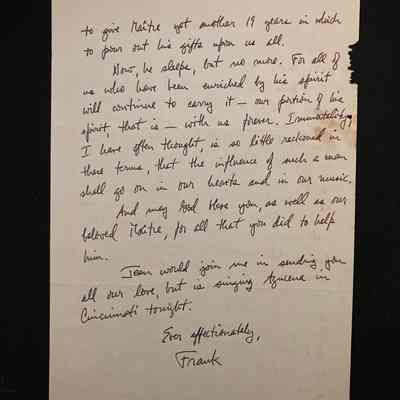 to give Maître yet another 19 years in which
to pour out his gifts upon us all.
Now, he sleeps, but no more. For all of
us who have been enriched by his spirit
will continue to carry it — our portion of his
spirit, that is — with us forever. Immortality,
I have often thought, is so little reckoned in
these terms, that the influence of such a man
shall go on in our hearts and in our music.
And may God bless you, as well as our
beloved Maître, for all that you did to help
him.
Jean would join me in sending you
all our love, but is singing Azucena in
Cincinnati tonight.
Ever affectionately,
Frank